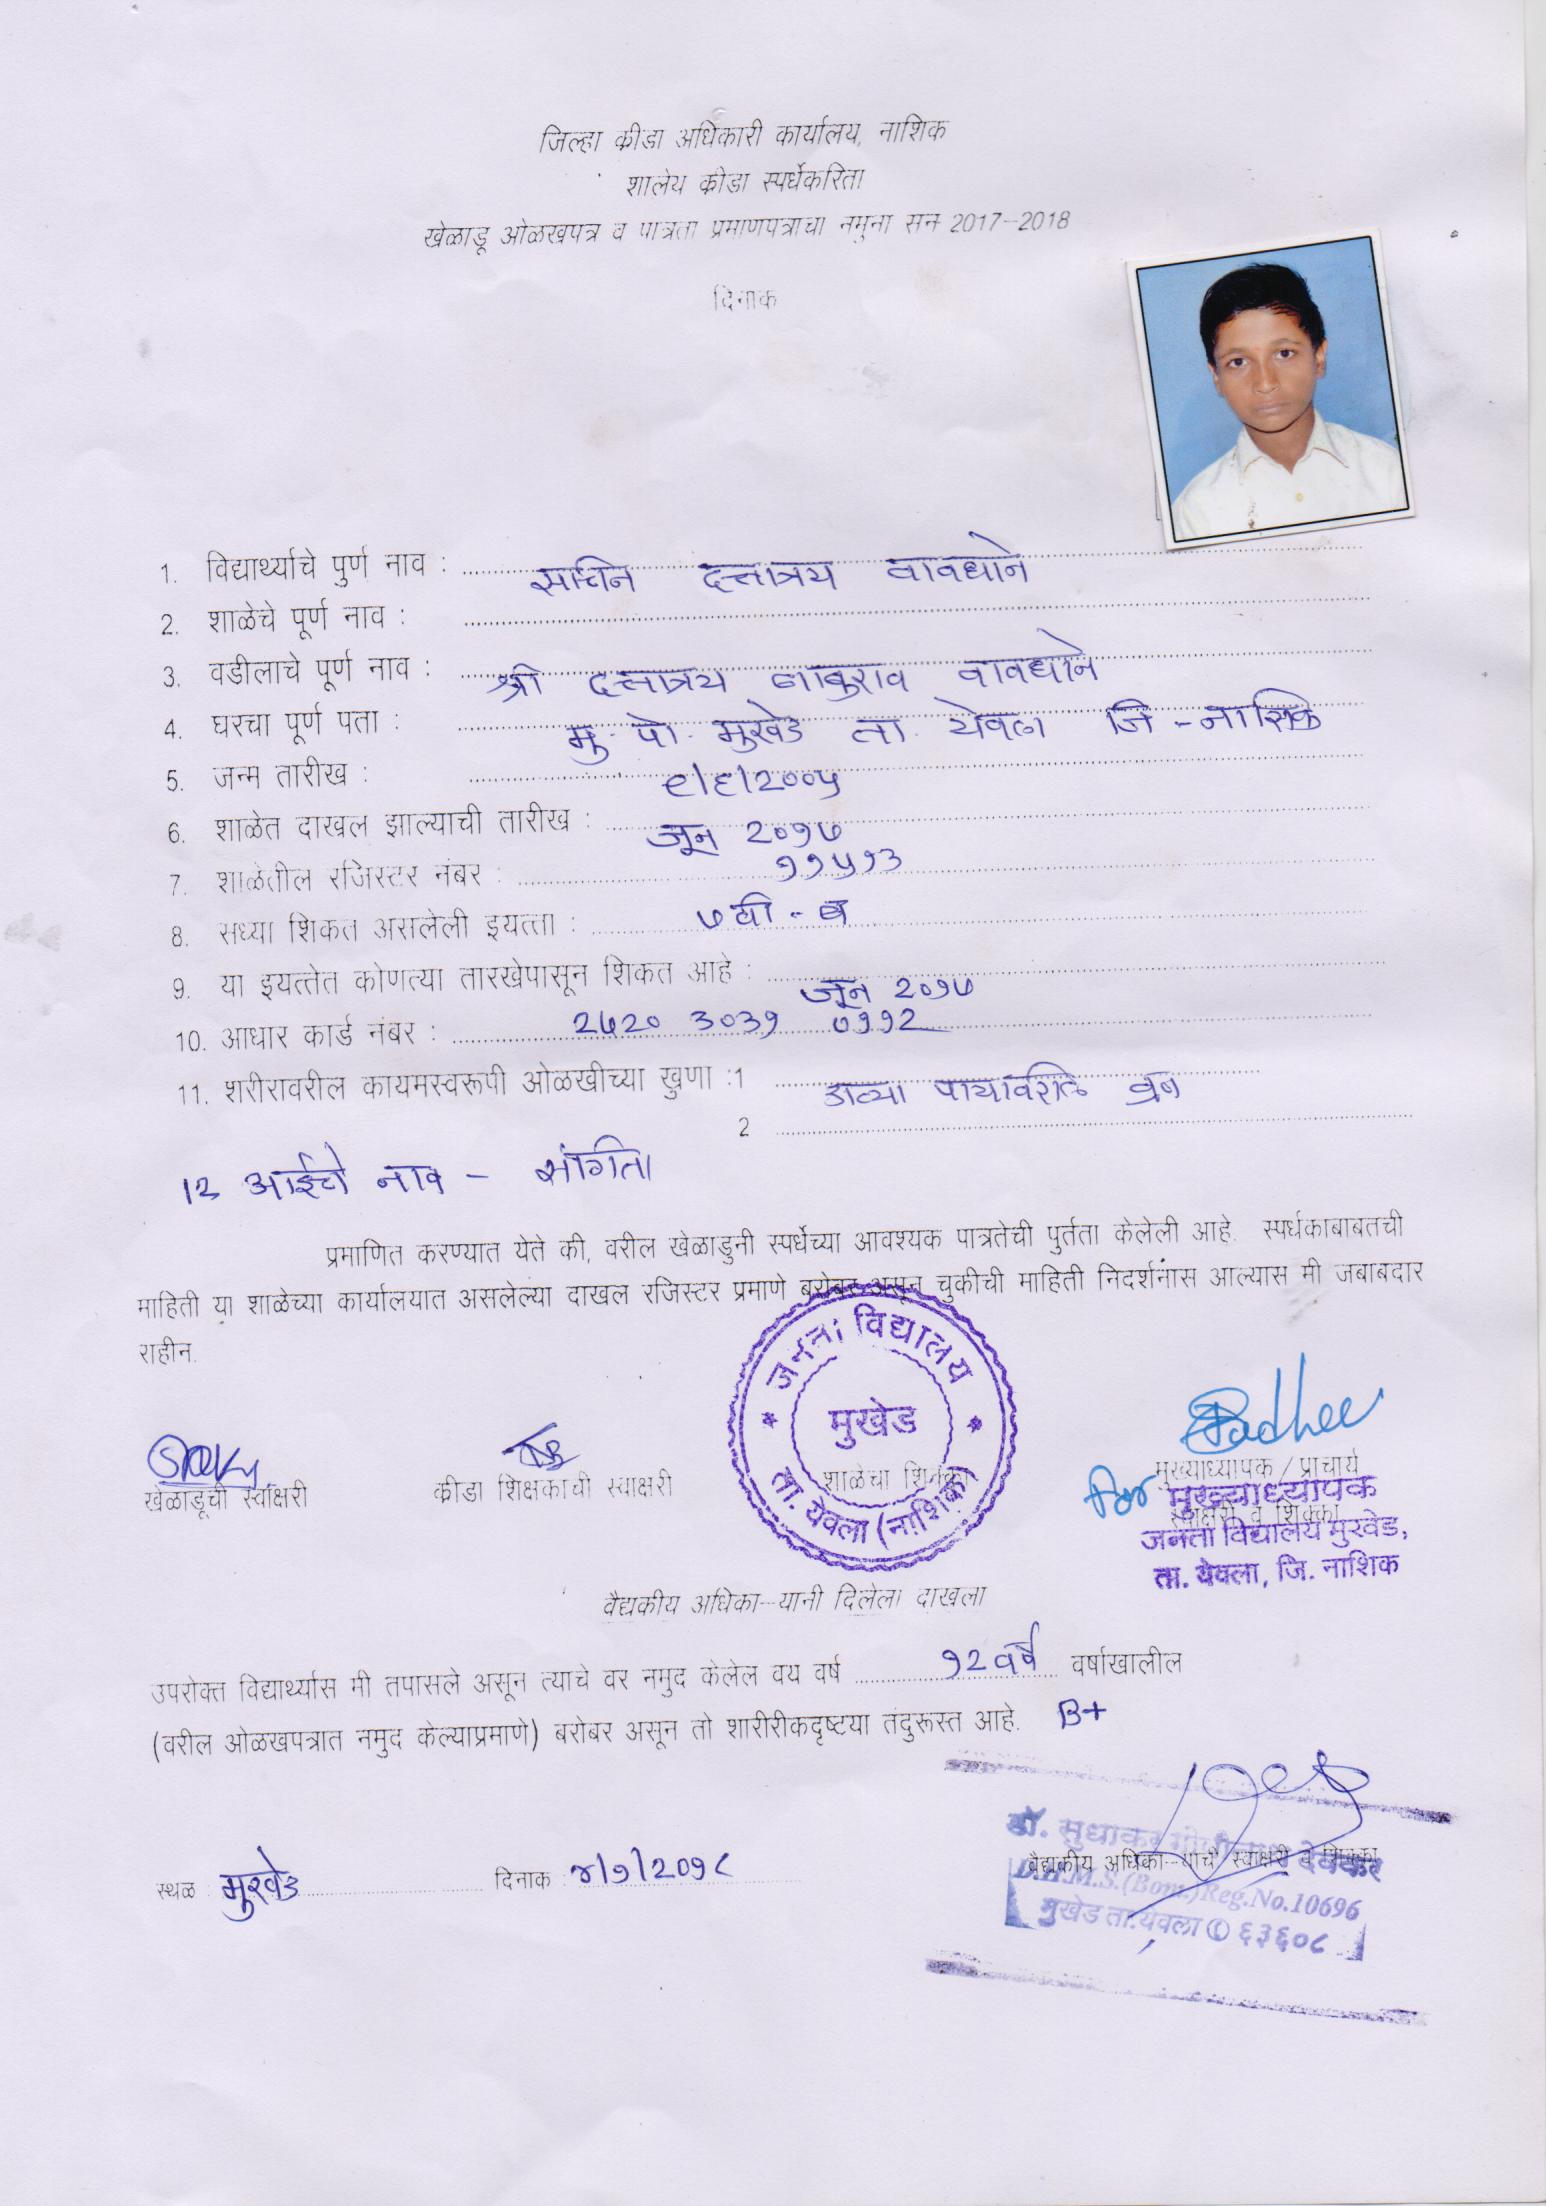 जिल्हा क्रीडा अधिकारी कार्यालय, नाशिक
शालेय क्रीडा स्पर्धेकरिता
खेळाडू ओळखपत्र व पात्रता प्रमाणपत्राचा नमुना सन 2017-2018
दिनाक
1. विद्यार्थ्याचे पुर्ण नाव : सचिन दत्तात्रय वावधाने
2. शाळेचे पूर्ण नाव :
3. वडीलाचे पूर्ण नाव : श्री दत्तात्रय बाबुराव वावधाने
4. घरचा पूर्ण पता : मु. पो. मुखेड ता. येवला जि - नाशिक
5. जन्म तारीख : ९/६/२००५
6. शाळेत दाखल झाल्याची तारीख : जून २०१७
7. शाळेतील रजिस्टर नंबर : ११५१३
8. सध्या शिकत असलेली इयत्ता : ७ वी - ब
9. या इयत्तेत कोणत्या तारखेपासून शिकत आहे : जून २०१७
10. आधार कार्ड नंबर : २५२० ३०३१ ७११२
11. शरीरावरील कायमस्वरूपी ओळखीच्या खुणा :1 डाव्या पायावरील व्रण
2
12 आईचे नाव - संगिता
प्रमाणित करण्यात येते की, वरील खेळाडुनी स्पर्धेच्या आवश्यक पात्रतेची पुर्तता केलेली आहे. स्पर्धकाबाबतची
माहिती या शाळेच्या कार्यालयात असलेल्या दाखल रजिस्टर प्रमाणे बरोबर असून चुकीची माहिती निदर्शनास आल्यास मी जबाबदार
राहीन.
जनता विद्यालय
मुखेड
ता. येवला (नाशिक)
खेळाडूची स्वाक्षरी क्रीडा शिक्षकाची स्वाक्षरी शाळेचा शिक्का मुख्याध्यापक / प्राचार्य
स्वाक्षरी व शिक्का
For मुख्याध्यापक
जनता विद्यालय मुखेड,
ता. येवला, जि. नाशिक
वैद्यकीय अधिका-यानी दिलेला दाखला
उपरोक्त विद्यार्थ्यास मी तपासले असून त्याचे वर नमुद केलेल वय वर्ष १२ वर्षे वर्षाखालील
(वरील ओळखपत्रात नमुद केल्याप्रमाणे) बरोबर असून तो शारीरीकदृष्टया तंदुरूस्त आहे. B+
स्थळ : मुखेड दिनाक : ४/१/२०१८ वैद्यकीय अधिका-याचे स्वाक्षरी व शिक्का
डॉ. सुधाकर गोपीनाथ देवकर
D.H.M.S.(Bom.)Reg.No.10696
मुखेड ता.येवला ✆ ६३६०८